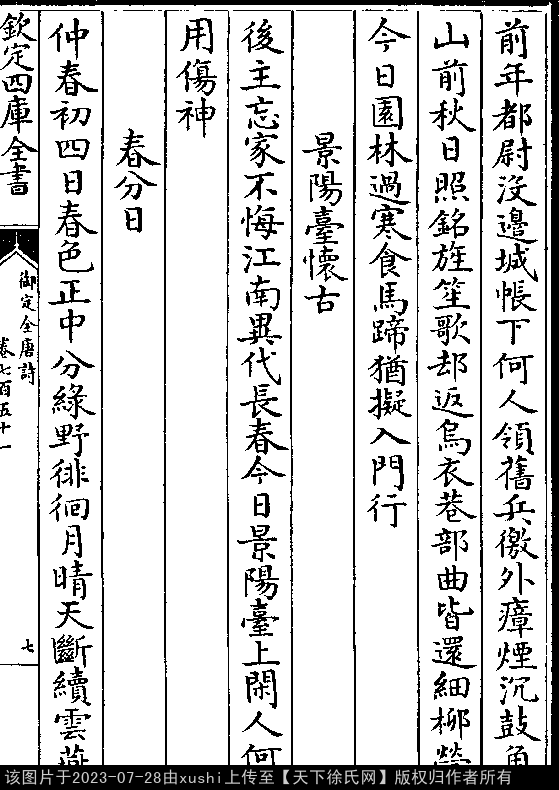 前年都尉沒邊城帳下何人領舊兵徼外瘴煙沉鼓角
山前秋日照銘旌笙歌却返烏衣巷部曲皆還細柳營
今日園林過寒食馬蹄猶擬入門行
景陽臺懷古
後主忘家不悔江南異代長春今日景陽臺上閑人何
用傷神
春分日
仲春初四日春色正中分綠野徘徊月晴天斷續雲燕
欽定四庫全書
御定全唐詩
卷七百五十一
七
该图片于2023-07-28由xushi上传至【天下徐氏网】版权归作者所有